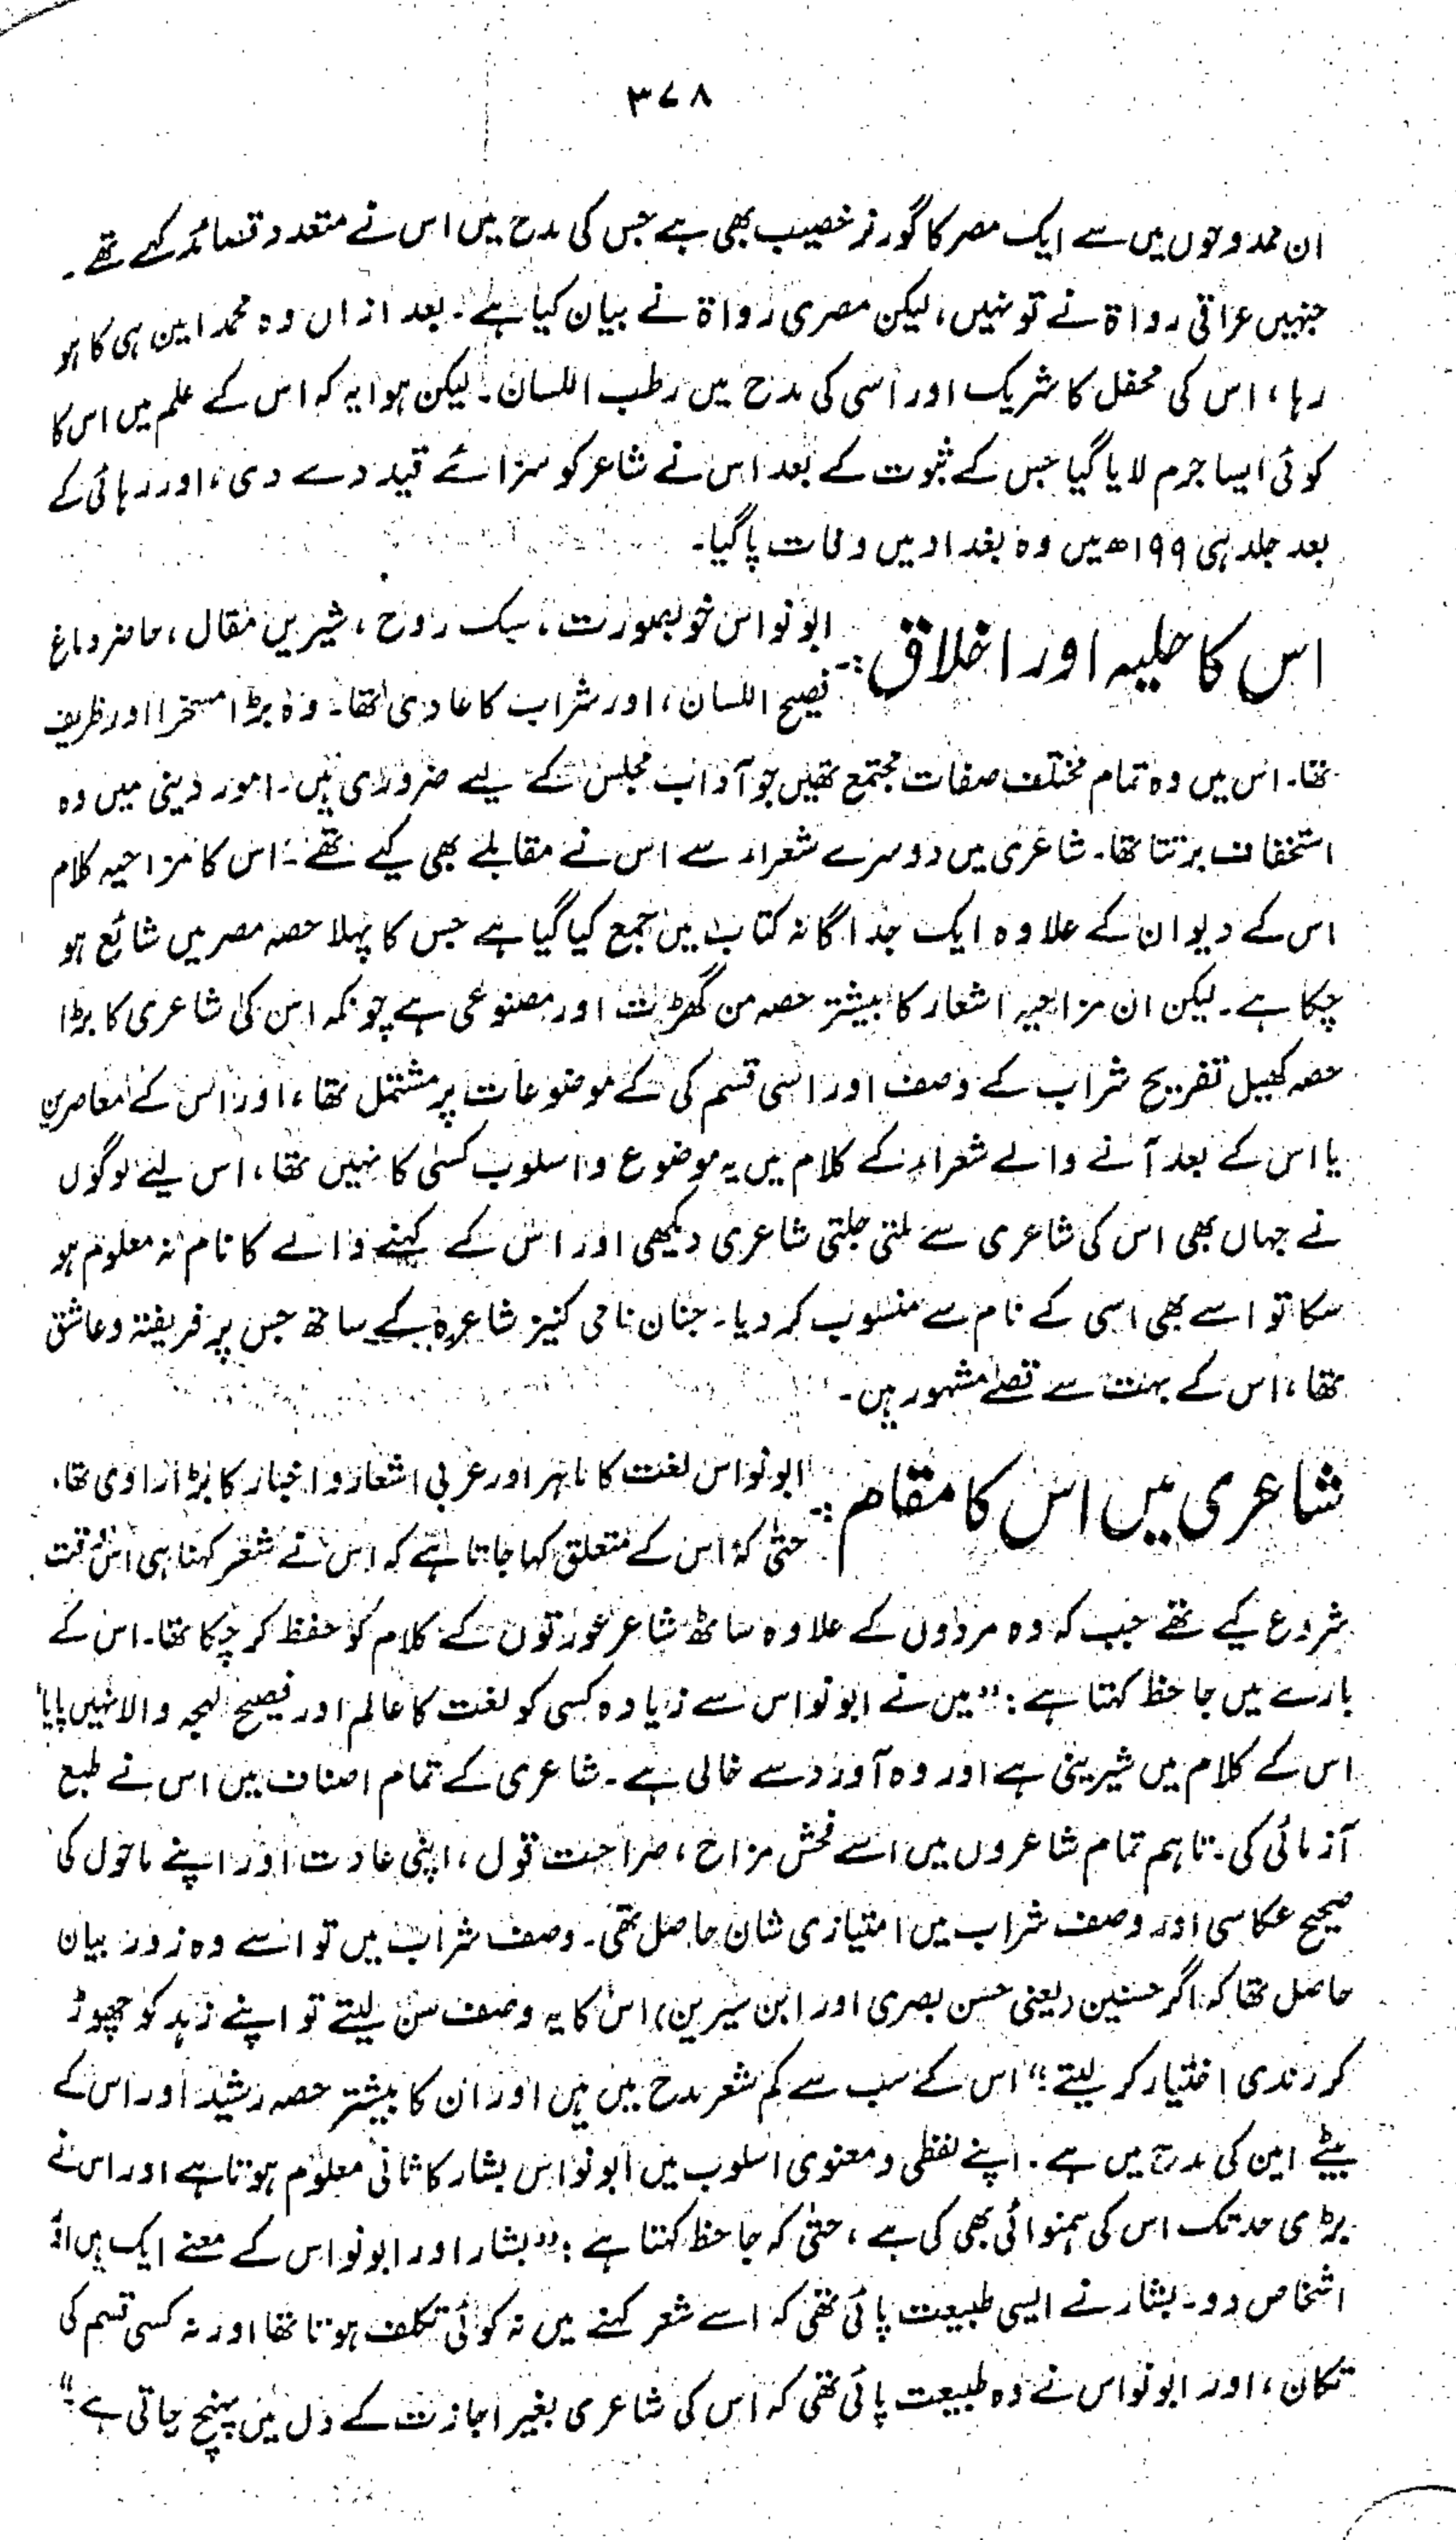 ۳۷۸
ان ممدوحوں میں سے ایک مصر کا گورنر خصیب بھی ہے جس کی مدح میں اس نے متعدد قصائد کہے تھے۔
جنہیں عراقی رواۃ نے تو نہیں، لیکن مصری رواۃ نے بیان کیا ہے۔ بعد ازاں وہ محمد امین ہی کا ہو
رہا، اس کی محفل کا شریک اور اسی کی مدح میں رطب اللسان۔ لیکن ہوا یہ کہ اس کے علم میں اس کا
کوئی ایسا جرم لایا گیا جس کے ثبوت کے بعد اس نے شاعر کو سزائے قید دے دی، اور رہائی کے
بعد جلد ہی ۱۹۹ھ میں وہ بغداد میں وفات پا گیا۔
اس کا حلیہ اور اخلاق:۔ ابو نواس خوبصورت، سبک روح، شیریں مقال، حاضر دماغ
فصیح اللسان، اور شراب کا عادی تھا۔ وہ بڑا مسخرا اور ظریف
تھا۔ اس میں وہ تمام مختلف صفات مجتمع تھیں جو آداب مجلس کے لیے ضروری ہیں۔ امور دینی میں وہ
استخفاف برتتا تھا۔ شاعری میں دوسرے شعراء سے اس نے مقابلے بھی کیے تھے۔ اس کا مزاحیہ کلام
اس کے دیوان کے علاوہ ایک جداگانہ کتاب میں جمع کیا گیا ہے جس کا پہلا حصہ مصر میں شائع ہو
چکا ہے۔ لیکن ان مزاحیہ اشعار کا بیشتر حصہ من گھڑت اور مصنوعی ہے چونکہ اس کی شاعری کا بڑا
حصہ کھیل تفریح شراب کے وصف اور اسی قسم کی کے موضوعات پر مشتمل تھا، اور اس کے معاصرین
یا اس کے بعد آنے والے شعراء کے کلام میں یہ موضوع و اسلوب کسی کا نہیں تھا، اس لیے لوگوں
نے جہاں بھی اس کی شاعری سے ملتی جلتی شاعری دیکھی اور اس کے کہنے والے کا نام نہ معلوم ہو
سکا تو اسے بھی اسی کے نام سے منسوب کر دیا۔ جنان نامی کنیز شاعرہ کے ساتھ جس پر فریفتہ و عاشق
تھا، اس کے بہت سے قصے مشہور ہیں۔
شاعری میں اس کا مقام:۔ ابو نواس لغت کا ماہر اور عربی اشعار و اخبار کا بڑا راوی تھا،
حتیٰ کہ اس کے متعلق کہا جاتا ہے کہ اس نے شعر کہنا ہی اس وقت
شروع کیے تھے جب کہ وہ مردوں کے علاوہ ساٹھ شاعر عورتوں کے کلام کو حفظ کر چکا تھا۔ اس کے
بارے میں جاحظ کہتا ہے: "میں نے ابو نواس سے زیادہ کسی کو لغت کا عالم اور فصیح لہجہ والا نہیں پایا
اس کے کلام میں شیرینی ہے اور وہ آورد سے خالی ہے۔ شاعری کے تمام اصناف میں اس نے طبع
آزمائی کی۔ تاہم تمام شاعروں میں اسے فحش مزاح، صراحت قول، اپنی عادت اور اپنے ماحول کی
صحیح عکاسی اور وصف شراب میں امتیازی شان حاصل تھی۔ وصف شراب میں تو اسے وہ زور بیان
حاصل تھا کہ اگر حسنین (یعنی حسن بصری اور ابن سیرین) اس کا یہ وصف سن لیتے تو اپنے زہد کو چھوڑ
کر رندی اختیار کر لیتے:" اس کے سب سے کم شعر مدح میں ہیں اور ان کا بیشتر حصہ رشید اور اس کے
بیٹے امین کی مدح میں ہے۔ اپنے لفظی و معنوی اسلوب میں ابو نواس بشار کا ثانی معلوم ہوتا ہے اور اس نے
بڑی حد تک اس کی ہمنوائی بھی کی ہے، حتیٰ کہ جاحظ کہتا ہے: "بشار اور ابو نواس کے معنے ایک ہیں اور
اشخاص دو۔ بشار نے ایسی طبیعت پائی تھی کہ اسے شعر کہنے میں نہ کوئی تکلف ہوتا تھا اور نہ کسی قسم کی
تکان، اور ابو نواس نے وہ طبیعت پائی تھی کہ اس کی شاعری بغیر اجازت کے دل میں پہنچ جاتی ہے:"